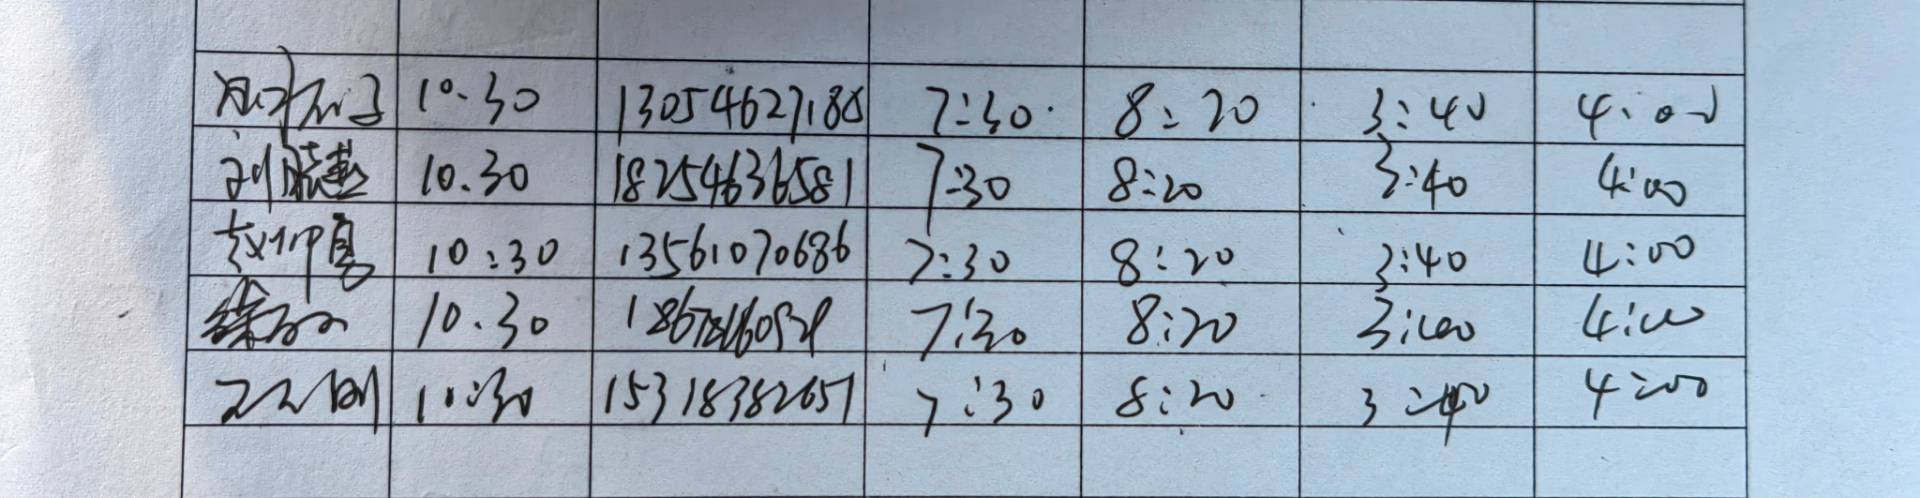 10.30 13054627188 7:30 8:20 3:40 4:00
刘晓燕 10.30 18254636581 7:30 8:20 3:40 4:00
赵仲昌 10:30 13561070686 7:30 8:20 3:40 4:00
10.30 7:30 8:20 3:40 4:00
10:30 15318382657 7:30 8:20 3:40 4:00